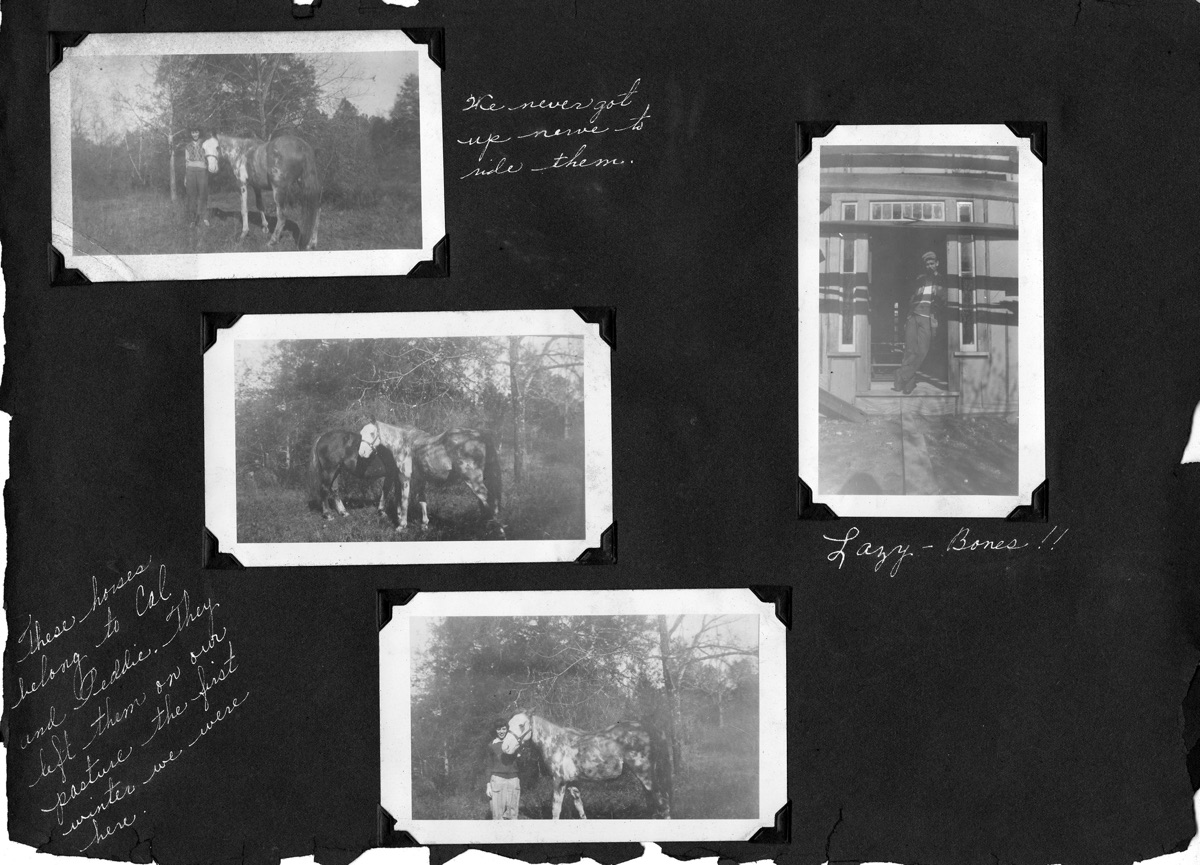 We never got
up nerve to
ride them.
Lazy - Bones !!
These horses
belong to Cal
and Deddie. They
left them on our
pasture the first
winter we were
here.